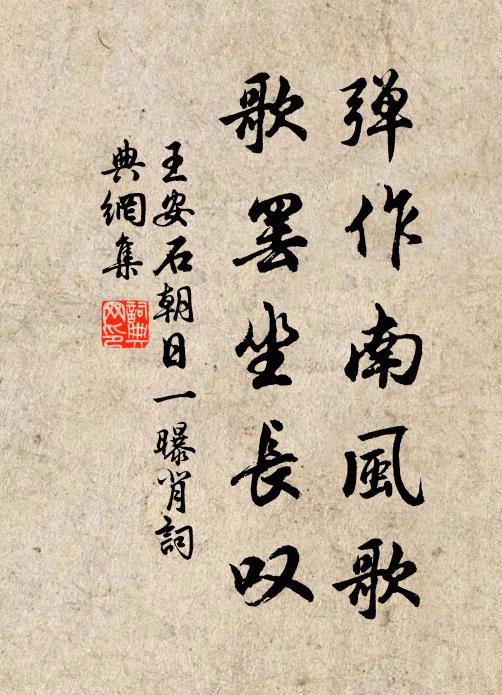 弹作南風歌
歌罢坐長叹
王安石朝日一曝背詞
典網集
詞典網印